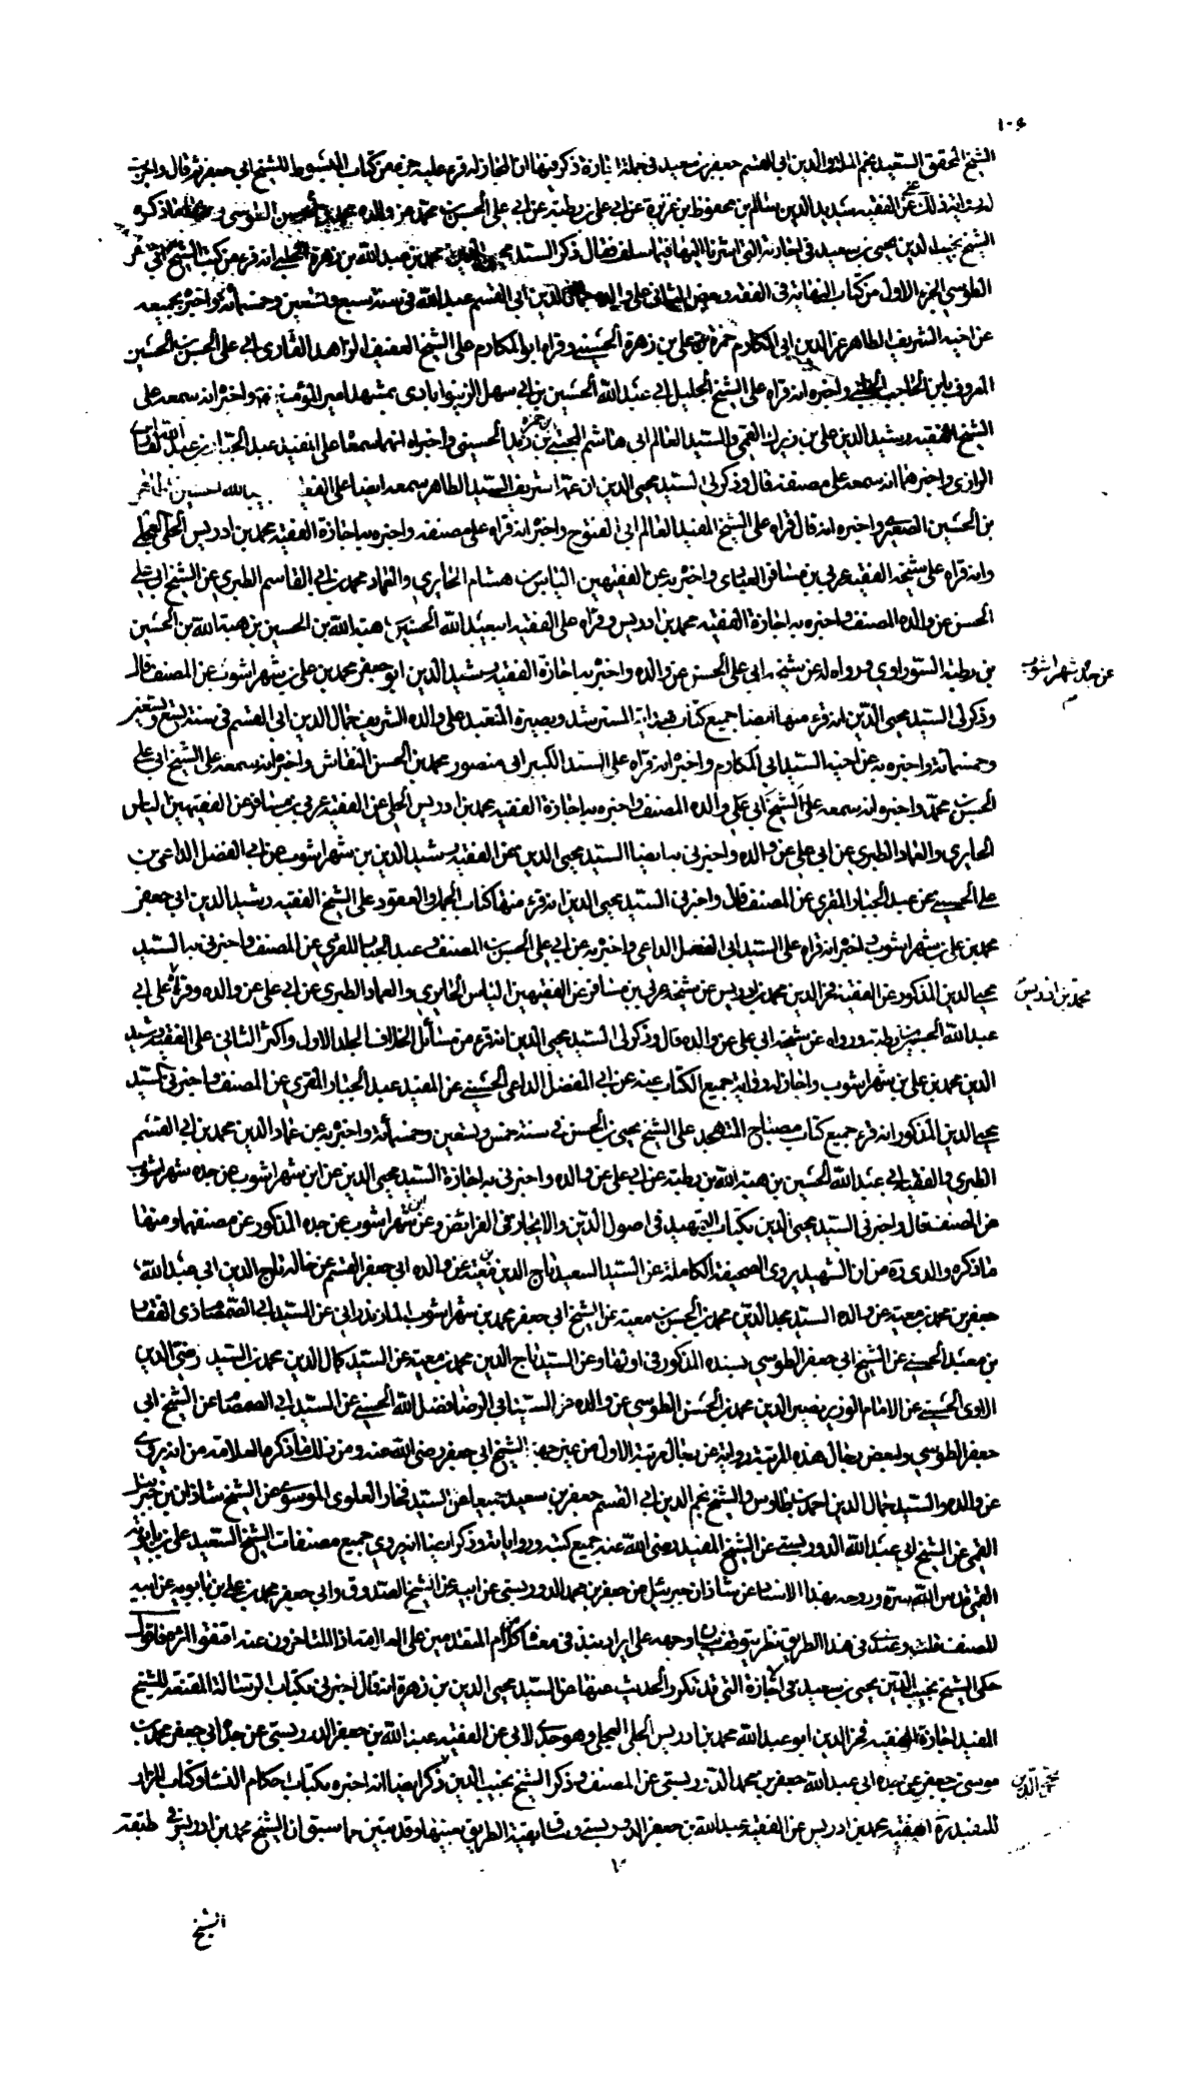 ١٠٦
الشيخ المحقق السعيد نجم الملة والدين ابي القسم جعفر بن سعيد في جملة اجازة ذكر فيها ان المجاز له قرء عليه جزء من كتاب المبسوط للشيخ ابي جعفر ثم قال واجزت
له رواية ذلك عني عن الفقيه سديد الدين سالم بن محفوظ ابن عزيزة عن ابي علي بن بطة عن ابي علي الحسن بن محمد عن والده محمد بن الحسن الطوسي ما ذكره
الشيخ نجيب الدين يحيى بن سعيد في اجازته التي اشرنا اليها فيما سلف قال ذكر السيد محيي الدين محمد بن عبد الله بن زهرة الحلبي انه قرء من كتب الشيخ ابي جعفر
الطوسي الجزء الاول من كتاب النهاية في الفقه وبعض الثاني على والده جمال الدين ابي القسم عبد الله في سنة سبع وتسعين وخمسمائة واخبره بجميعه
عن اخيه الشريف الطاهر عز الدين ابي المكارم حمزة بن علي بن زهرة الحسيني وقراه ابو المكارم على الشيخ العفيف الزاهد القاري ابي علي الحسن بن الحسين
المعروف بابن الحاجب الحلبي واخبره انه قراه على الشيخ الجليل ابي عبد الله الحسين بن علي بن ابي سهل الزينوابادي بمشهد امير المؤمنين واخبره انه سمعه على
الشيخ الفقيه رشيد الدين علي بن زيرك القمي والسيد العالم ابي هاشم المجتبى بن حمزة بن زيد الحسيني واخبراه انهما سمعاه على المفيد عبد الجبار بن عبد الله القاري
الرازي واخبرهما انه سمعه على مصنفه قال وذكر لي السيد محيي الدين ان عمه الشريف السيد الطاهر سمعه ايضا على الفقيه
بن الحسين الصغير واخبره انه قال قراه على الشيخ المفيد العالم ابي الفتوح واخبره انه قراه على مصنفه واخبره به اجازة الفقيه محمد بن ادريس الحلي العجلي
وانه قراه على شيخه الفقيه عربي بن مسافر العبادي واخبره به عن الفقيهين الياس بن هشام الحايري والعماد محمد بن ابي القاسم الطبري عن الشيخ ابي علي
الحسن عن والده المصنف واخبره به اجازة الفقيه محمد بن ادريس وقراه على الفقيه ابي عبد الله الحسين بن هبة الله بن الحسين بن هبة الله بن الحسين
بن رطبة السوراوي ورواه له عن شيخه ابي علي الحسن عن والده واخبره به اجازة الفقيه رشيد الدين ابو جعفر محمد بن علي بن شهراشوب عن المصنف قال
عن جده شهراشوب
وذكر لي السيد محيي الدين انه قرء منها ايضا جميع كتاب هداية المسترشد وبصيرة المتعبد على والده الشريف جمال الدين ابي القسم في سنة سبع وتسعين
وخمسمائة واخبره به عن اخيه السيد ابي المكارم واخبره انه قراه على السيد الكبير ابي منصور محمد بن الحسن النقاش واخبره انه سمعه على الشيخ ابي علي
الحسن بن محمد واخبره انه سمعه على الشيخ ابي علي والده المصنف واخبره به اجازة الفقيه محمد بن ادريس الحلي عن الفقيه عربي بن مسافر عن الفقيهين الياس
الحايري والعماد الطبري عن ابي علي عن والده واخبرني به ايضا السيد محيي الدين عن الفقيه رشيد الدين بن شهراشوب عن ابي الفضل الداعي بن
علي الحسيني عن عبد الجبار المقري عن المصنف قال واخبرني السيد محيي الدين انه قرء منها كتاب الجمل والعقود على الشيخ الفقيه رشيد الدين ابي جعفر
محمد بن علي بن شهراشوب واخبره انه قراه على السيد ابي الفضل الداعي واخبره به عن ابي علي الحسن بن المصنف وعبد الجبار المقري عن المصنف واخبرني به السيد
محيي الدين المذكور عن الفقيه فخر الدين محمد بن ادريس عن شيخه عربي بن مسافر عن الفقيهين الياس الحايري والعماد الطبري عن ابي علي عن والده وقراه على ابي
محمد بن ادريس
عبد الله الحسين بن رطبة ورواه عن شيخه ابي علي عن والده قال وذكر لي السيد محيي الدين انه قرء من مسائل الخلاف المجلد الاول واكثر الثاني على الفقيه رشيد
الدين محمد بن علي بن شهراشوب واجاز له رواية جميع الكتاب عنه عن ابي الفضل الداعي الحسيني عن المفيد عبد الجبار المقري عن المصنف واخبرني السيد
محيي الدين المذكور انه قرء جميع كتاب مصباح المتهجد على الشيخ يحيى بن الحسن في سنة خمس وتسعين وخمسمائة واخبره به عن عماد الدين محمد بن ابي القسم
الطبري والفقيه ابي عبد الله الحسين بن هبة الله بن رطبة عن ابي علي عن والده واخبرني به اجازة السيد محيي الدين عن ابن شهراشوب عن جده شهراشوب
عن المصنف قال واخبرني السيد محيي الدين بكتاب التمهيد في اصول الدين والايجاز في الفرائض وعن ابن شهراشوب عن جده المذكور عن مصنفهما ومنها
ما ذكره والدي ره من ان الشهيد يروي الصحيفة الكاملة عن السيد السعيد تاج الدين بن معية عن والده ابي جعفر القسم عن خاله تاج الدين ابي عبد الله
جعفر بن محمد بن معية عن والده السيد مجد الدين محمد بن الحسن بن معية عن الشيخ ابي جعفر محمد بن شهراشوب المازندراني عن السيد ابي الصمصام ذي الفقار
بن معبد الحسني عن الشيخ ابي جعفر الطوسي بسنده المذكور في اولها وعن السيد تاج الدين محمد بن معية عن السيد كمال الدين محمد بن السيد رضي الدين
الاوي الحسيني عن الامام الوزير نصير الدين محمد بن الحسن الطوسي عن والده عن السيد ابي الرضا فضل الله الحسني عن السيد ابي الصمصام عن الشيخ ابي
جعفر الطوسي ولبعض رجال هذه المرتبة رواية عن رجال المرتبة الاولى من غير جهة الشيخ ابي جعفر رضي الله عنه ومن ذلك ما ذكره العلامة من انه يروي
عن والده والسيد جمال الدين احمد بن طاوس والشيخ نجم الدين ابي القسم جعفر بن سعيد جميعا عن السيد فخار العلوي الموسوي عن الشيخ شاذان بن جبرئيل
القمي عن الشيخ ابي عبد الله الدوريستي عن الشيخ المفيد رضي الله عنه جميع كتبه ورواياته وذكر ايضا انه يروي جميع مصنفات الشيخ السعيد علي بن بابويه
القمي قدس الله سره وروحه بهذا الاسناد عن شاذان جبرئيل عن جعفر بن محمد الدوريستي عن ابيه عن الشيخ الصدوق ابي جعفر محمد بن علي بن بابويه عن ابيه
المصنف قلت وعندي في هذا الطريق نظر يتوقف بيان وجهه على ايراد نبذ في معناه من كلام المتقدمين على العلامة اذ المتاخرون عنه اقتفوا اثره فاقول
حكى الشيخ نجيب الدين يحيى بن سعيد في الاجازة التي قد تكرر الحديث عنها عن السيد محيي الدين بن زهرة انه قال اخبرني بكتاب الرسالة المقنعة للشيخ
المفيد اجازة الفقيه فخر الدين ابو عبد الله محمد بن ادريس الحلي العجلي وهو جدي لابي عن الفقيه عبد الله بن جعفر الدوريستي عن جده ابي جعفر محمد بن
موسى بن جعفر عن جده ابي عبد الله جعفر بن محمد الدوريستي عن المصنف وذكر الشيخ نجيب الدين ذكر ايضا انه اخبره بكتاب احكام النساء وكتاب المزار
للمفيد ره الفقيه محمد بن ادريس عن الفقيه عبد الله بن جعفر الدوريستي وساق بقية الطريق بعينها وقد تبين مما سبق ان الشيخ محمد بن ادريس في طبقة
١٠
الشيخ